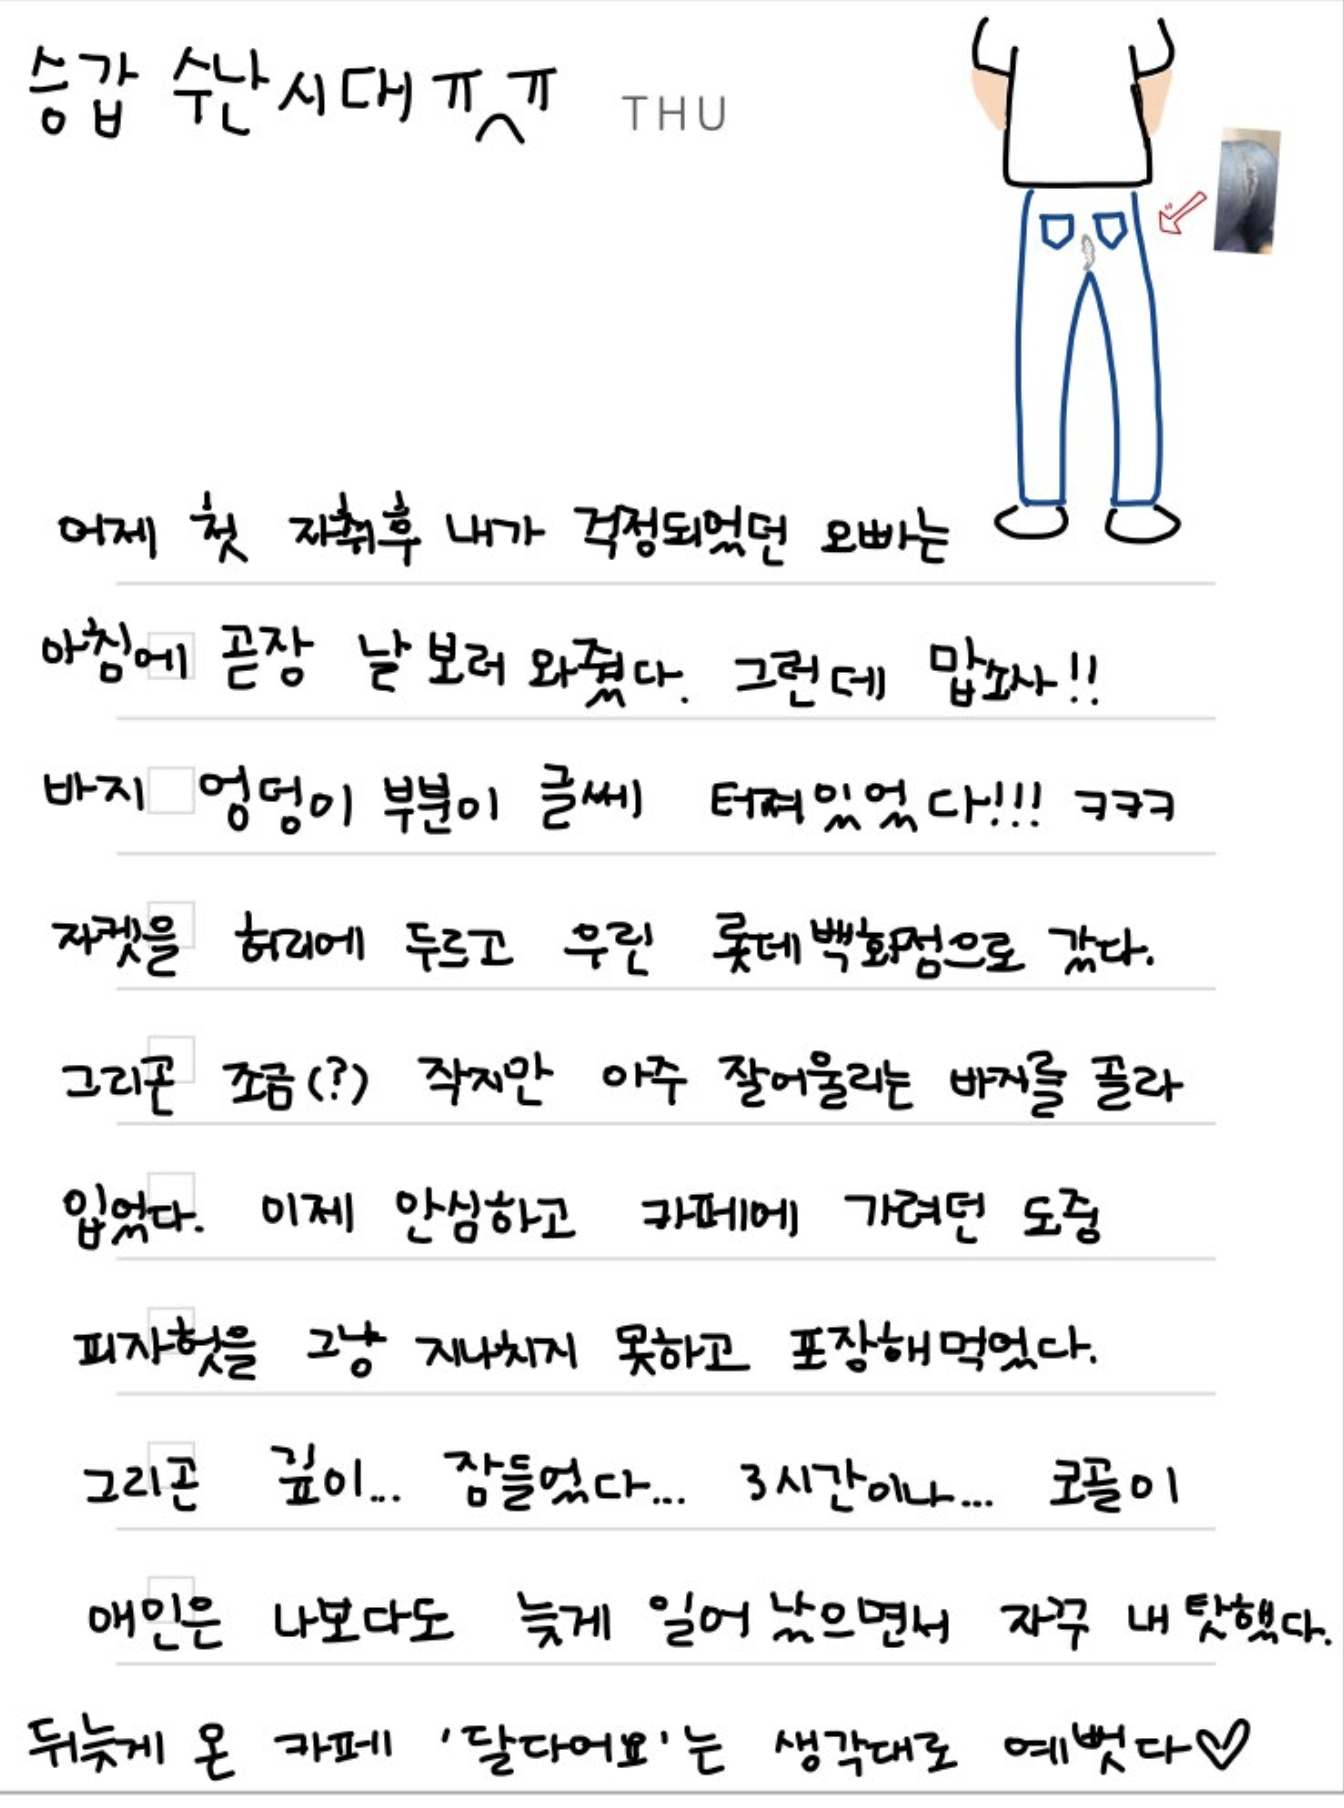 승갑 수난시대 ㅠ^ㅠ THU
어제 첫 자취후 내가 걱정되었던 오빠는
아침에 곧장 날 보러 와줬다. 그런데 맙소사!!
바지 엉덩이 부분이 글쎄 터져있었다!!! ㅋㅋㅋ
자켓을 허리에 두르고 우린 롯데백화점으로 갔다.
그리곤 조금(?) 작지만 아주 잘어울리는 바지를 골라
입었다. 이제 안심하고 카페에 가려던 도중
피자헛을 그냥 지나치지 못하고 포장해먹었다.
그리곤 깊이... 잠들었다... 3시간이나... 코골이
애인은 나보다도 늦게 일어났으면서 자꾸 내 탓했다.
뒤늦게 온 카페 '달다어요'는 생각대로 예뻤다♡